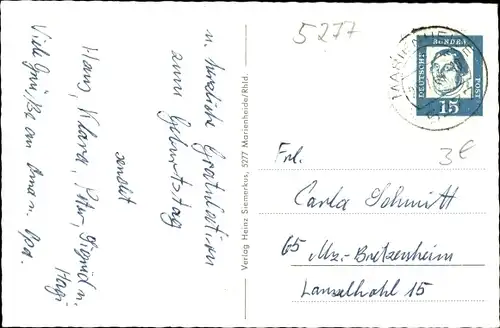 5277
u. herzliche Gratulation
zum Geburtstag
sendet
Hans, Klara, Peter, Sigrid u.
Hagi
Viele Grüße an Oma u. Opa.
Verlag Heinz Siemerkus, 5277 Marienheide/Rhld.
DEUTSCHE
BUNDES
POST
15
3€
Frl.
Carla Schmitt
65 Mz.-Bretzenheim
Lanzelhohl 15